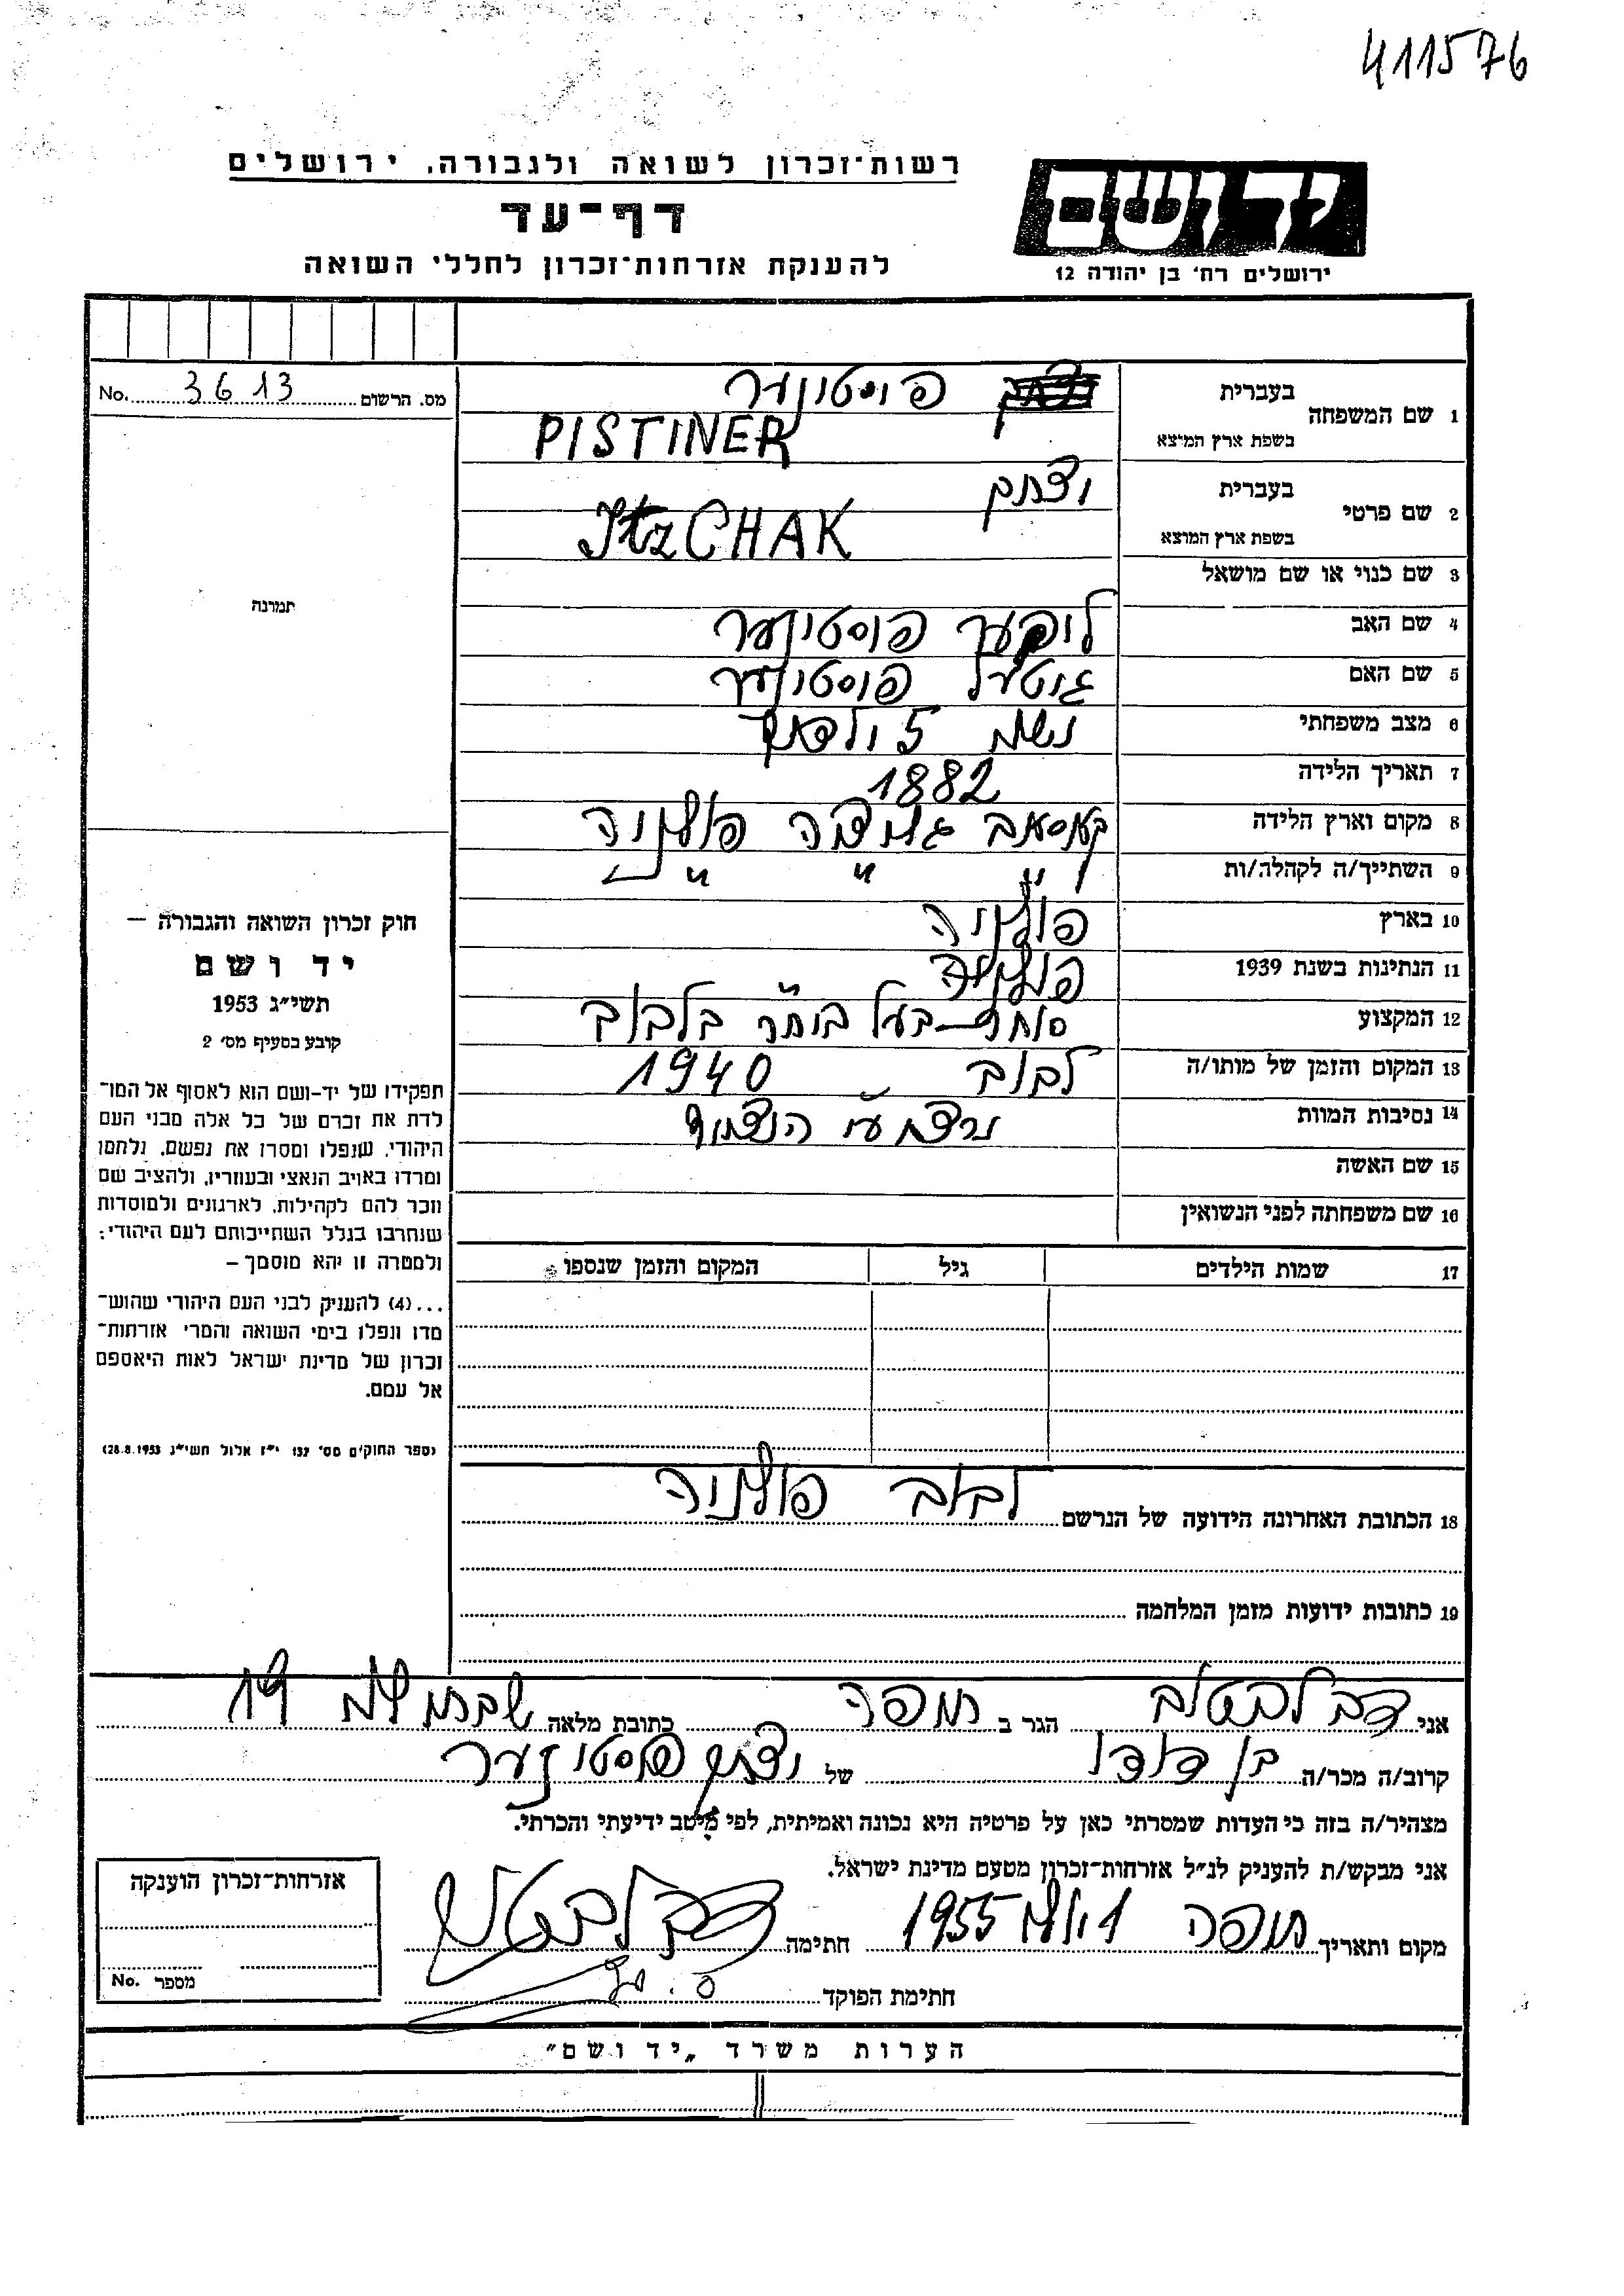 411576
רשות־זכרון לשואה ולגבורה, ירושלים
דף־עד
להענקת אזרחות־זכרון לחללי השואה
יד ושם
ירושלים רח' בן יהודה 12
No. 3613 מס. הרשום
תמונה
1 שם המשפחה
בעברית פיסטינער
בשפת ארץ המוצא PISTINER
2 שם פרטי
בעברית יצחק
בשפת ארץ המוצא ItzCHAK
3 שם כנוי או שם מושאל
4 שם האב פיסטינער
5 שם האם גיטעל פיסטינער
6 מצב משפחתי נשוי 5 ילדים
7 תאריך הלידה 1882
8 מקום וארץ הלידה קאסאוב גליציה פולניה
9 השתייך/ה לקהלה/ות " " " "
10 בארץ פולניה
11 הנתינות בשנת 1939 פולניה
12 המקצוע סוחר בעל בית בלבוב
13 המקום והזמן של מותו/ה לבוב 1940
14 נסיבות המוות נרצח ע"י הנאצים
15 שם האשה
16 שם משפחתה לפני הנשואין
17 שמות הילדים גיל המקום והזמן שנספו
18 הכתובת האחרונה הידועה של הנרשם לבוב פולניה
19 כתובות ידועות מזמן המלחמה
חוק זכרון השואה והגבורה –
יד ושם
תשי"ג 1953
קובע בסעיף מס' 2
תפקידו של יד־ושם הוא לאסוף אל המו־
לדת את זכרם של כל אלה מבני העם
היהודי, שנפלו ומסרו את נפשם, נלחמו
ומרדו באויב הנאצי ובעוזריו, ולהציב שם
וזכר להם לקהילות, לארגונים ולמוסדות
שנחרבו בגלל השתייכותם לעם היהודי;
ולמטרה זו יהא מוסמך –
...(4) להעניק לבני העם היהודי שהוש־
מדו ונפלו בימי השואה והמרי אזרחות־
זכרון של מדינת ישראל לאות היאספם
אל עמם.
(ספר החוקים מס' 132 י"ז אלול תשי"ג 28.8.1953)
אני דב הגר ב חיפה כתובת מלאה 19
קרוב/ה מכר/ה בן דודו של יצחק פיסטינער
מצהיר/ה בזה כי העדות שמסרתי כאן על פרטיה היא נכונה ואמיתית, לפי מיטב ידיעתי והכרתי.
אני מבקש/ת להעניק לנ"ל אזרחות־זכרון מטעם מדינת ישראל.
מקום ותאריך חיפה 1 יולי 1955 חתימה
חתימת הפוקד
אזרחות־זכרון הוענקה
No. מספר
הערות משרד „יד ושם"